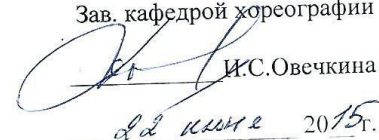 Зав. кафедрой хореографии
И.С.Овечкина
22 июня 2015г.